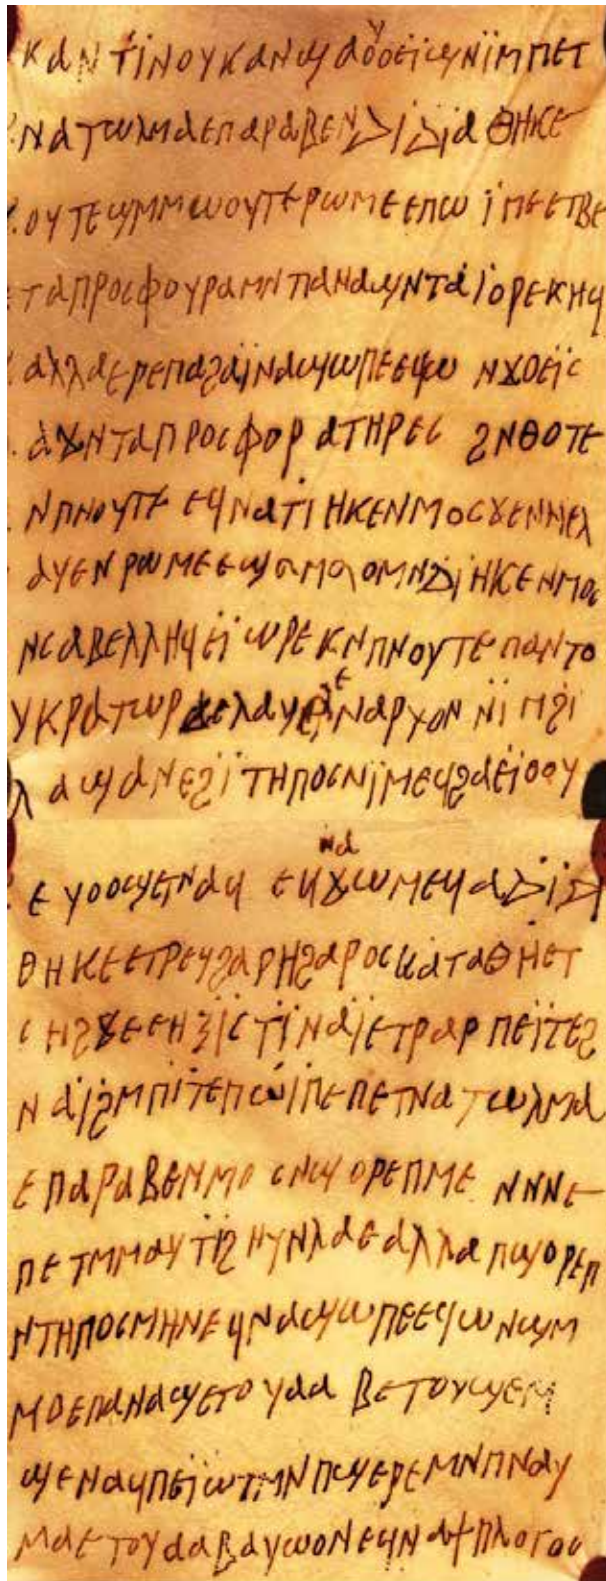 ⲕⲁⲛ ϯⲛⲟⲩ ⲕⲁⲛ ϣⲁⲟⲩⲟⲉⲓϣ ⲛⲓⲙ ⲡⲉⲧ
ⲛⲁⲧⲱⲗⲙⲁ ⲉⲡⲁⲣⲁⲃⲉⲛ ⲇⲓⲇⲓⲁⲑⲏⲕⲉ
ⲟⲩⲧⲉ ϣⲙⲙⲱ ⲟⲩⲧⲉ ⲣⲱⲙⲉ ⲉⲡⲱⲓ ⲡⲉ ⲉⲧⲃⲉ
ⲧⲁⲡⲣⲟⲥⲫⲟⲩⲣⲁ ⲙⲛ ⲡⲁⲛⲁϣ ⲛⲧⲁⲓⲟⲣⲉⲕϥ
ⲁⲗⲗⲁ ⲉⲣⲉ ⲡⲁϩⲁⲓ ⲛⲁϣⲱⲡⲉ ⲉϥⲱ ⲛϫⲟⲉⲓⲥ
ⲁϫⲛ ⲧⲁⲡⲣⲟⲥⲫⲟⲣⲁ ⲧⲏⲣⲉⲥ ϩⲛ ⲑⲟⲧⲉ
ⲛⲡⲛⲟⲩⲧⲉ ⲉϥⲛⲁϯⲏⲕⲉ ⲛⲙⲟⲥ ϫⲉⲛ ⲛⲉⲗ
ⲁⲩⲉ ⲛⲣⲱⲙⲉ ⲉϣ ⲁⲙⲁⲟⲙ ⲛⲇⲓⲏⲕⲉ ⲛⲙⲟⲥ
ⲛⲥⲁⲃⲉⲗⲗⲏϥ ⲉⲓⲱⲣⲉⲕ ⲛⲡⲛⲟⲩⲧⲉ ⲡⲁⲛⲧⲟ
ⲩⲕⲣⲁⲧⲱⲣ ϫⲉ ⲗⲁⲩⲉ ⲛⲁⲣⲭⲟⲛ ⲛⲓⲙ ϩⲓ
ⲗⲁϣⲁⲛⲉ ϩⲓ ⲧⲏⲡⲟⲥ ⲛⲓⲙ ⲉϥϩⲁ ⲉⲓⲟⲟⲩ
ⲉⲩⲟⲟϣⲉ ⲛⲁϥ ⲉϥⲛⲁϫⲱⲙ ⲉϥⲁⲇⲓⲇⲓ
ⲑⲏⲕⲉ ⲉⲧⲣⲉϥϩⲁⲣⲏϩ ⲁⲣⲟⲥ ⲕⲁⲧⲁ ⲑⲏ ⲉⲧ
ⲥⲏϩ ϫⲉ ⲉⲏⲝⲓⲥⲧⲓ ⲛⲁⲓ ⲉⲧⲣⲁⲣ ⲡⲉⲓⲧⲉϩ
ⲛⲁⲓ ϩⲙ ⲡⲓⲧⲉⲡⲱⲓ ⲡⲉ ⲡⲉⲧⲛⲁⲧⲱⲗⲙⲁ
ⲉⲡⲁⲣⲁⲃⲉⲛ ⲙⲙⲟⲥ ⲛϣⲟⲣⲉⲡ ⲙⲉⲛ ⲛⲛⲉ
ⲡⲉⲧⲙⲙⲁⲩ ϯϩⲏⲩ ⲛⲗⲁⲉ ⲁⲗⲗⲁ ⲡϣⲟⲣⲉⲡ
ⲛⲧⲏⲡⲟⲥ ⲙⲏⲛ ⲉϥⲛⲁϣⲱⲡⲉ ⲉϥⲱ ⲛϣⲙ
ⲙⲟ ⲉⲡⲁⲛⲁϣ ⲉⲧⲟⲩⲁⲁⲃ ⲉⲧⲟⲩϣⲉⲙ
ϣⲉ ⲛⲁϥ ⲡⲉⲓⲱⲧ ⲙⲛ ⲡϣⲉⲣⲉ ⲙⲛ ⲡⲛⲁⲩ
ⲙⲁ ⲉⲧⲟⲩⲁⲁⲃ ⲁⲩⲱ ⲟⲛ ⲉϥⲛⲁϯ ⲡⲗⲟⲅⲟⲥ